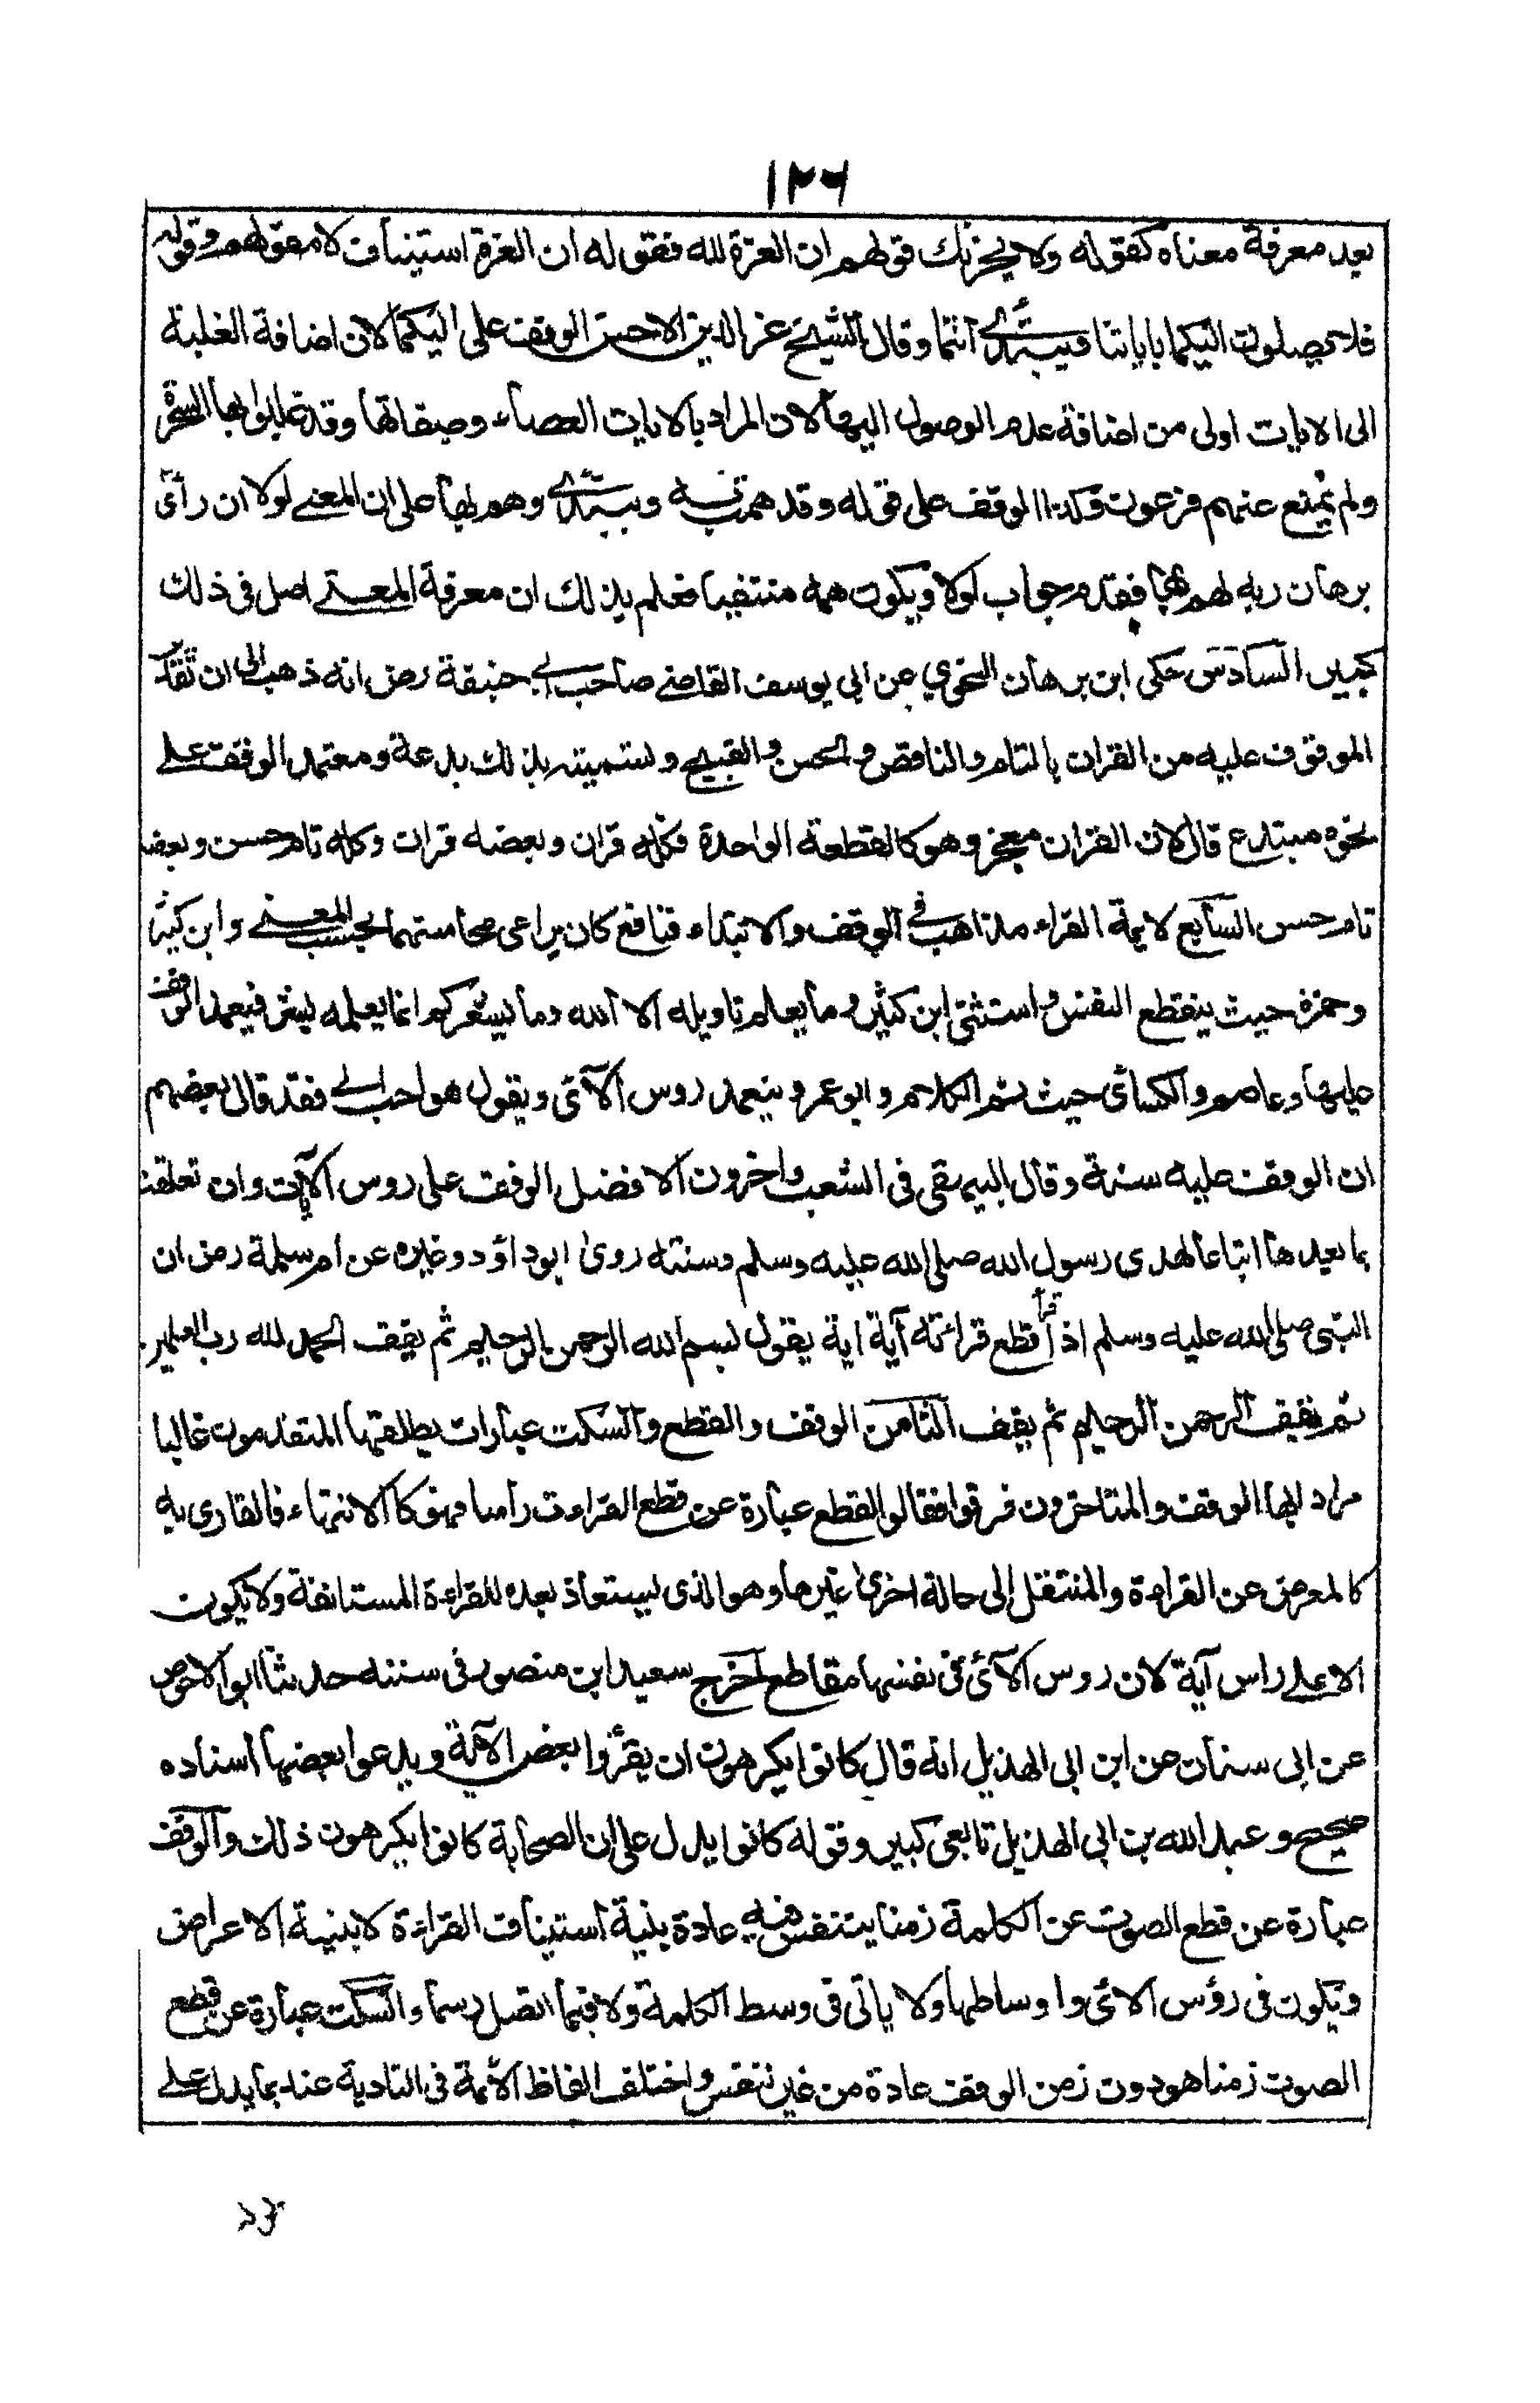 ١٢٦
بعد معرفة معناه كقوله ولا يحزنك قولهم ان العزة لله فقوله ان العزة استيناف لا مقولهم وقوله
فلا يصلون اليكما باياتنا ويبتدى انتما وقال الشيخ عز الدين الاحسن الوقف على اليكما لان اضافة الغلبة
الى الايات اولى من اضافة عدم الوصول اليها لان المراد بالايات العصاء وصفاتها وقد غلبوا بها السحرة
ولم يمنع عنهم فرعون وكذا الوقف على قوله وقد همت به ويبتدى وهم بها على ان المعنى لولا ان رأى
برهان ربه لهم بها فقدم جواب لولا ويكون همه منتفيا فعلم بذلك ان معرفة المعنى اصل فى ذلك
كبير السادس حكى ابن برهان النحوي عن ابى يوسف القاضى صاحب ابى حنيفة رض انه ذهب الى ان تقدير
الموقوف عليه من القران بالتام والناقص والحسن والقبيح وتسميته بذلك بدعة ومعتمد الوقف على
نحوه مبتدع قال لان القران معجز وهو كالقطعة الواحدة فكله قران وبعضه قران وكله تام حسن وبعضه
تام حسن السابع لائمة القراء مذاهب فى الوقف والابتداء فنافع كان يراعى محاسنهما بحسب المعنى وابن كثير
وحمزة حيث ينقطع النفس واستثنى ابن كثير وما يعلم تاويله الا الله وما يشعركم انما يعلمه بشر فيعمد الوقف
عليها وعاصم والكسائى حيث تم الكلام وابو عمرو يتعمد روس الآئ ويقول هو احب الى فقد قال بعضهم
ان الوقف عليه سنة وقال البيهقى فى الشعب واخرون الافضل الوقف على روس الآيات وان تعلقت
بما بعدها اتباعا لهدى رسول الله صلى الله عليه وسلم وسنته روى ابو داؤد وغيره عن ام سلمة رض ان
النبى صلى الله عليه وسلم اذا قرأ قطع قرائته آية اية يقول بسم الله الرحمن الرحيم ثم يقف الحمد لله رب العلمين
ثم يقيف الرحمن الرحيم ثم يقف الثامن الوقف والقطع والسكت عبارات يطلقها المتقدمون غالبا
مراد ابها الوقف والمتاخرون فرقوا فقالوا القطع عبارة عن قطع القراءت راسا فهو كا الانتهاء فالقارى به
كالمعرض عن القراءة والمنتقل الى حالة اخرى غيرها وهو الذى يستعاذ بعده للقراءة المستانفة ولا يكون
الا على راس آية لان روس الآئ فى نفسها مقاطع اخرج سعيد ابن منصور فى سننه حدثنا ابو الاحوص
عن ابى سنان عن ابن ابى الهذيل انه قال كانوا يكرهون ان يقرؤا بعض الآية ويدعوا بعضها اسناده
صحيح وعبد الله بن ابى الهذيل تابعى كبير وقوله كانوا يدل على ان الصحابة كانوا يكرهون ذلك والوقف
عبارة عن قطع الصوت عن الكلمة زمنا يتنفس فيه عادة بنية استيناف القراءة لا بنية الاعراض
ويكون فى رؤس الائ واوساطها ولا ياتى فى وسط الكلمة ولا فيما اتصل رسما والسكت عبارة عن قطع
الصوت زمنا هو دون زمن الوقف عادة من غير تنفس واختلف الفاظ الائمة فى التادية عنه بما يدل على